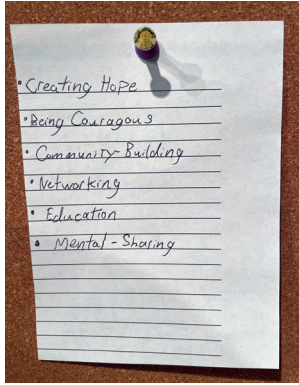 • Creating Hope
• Being Couragous
• Community-Building
• Networking
• Education
• Mental-Sharing